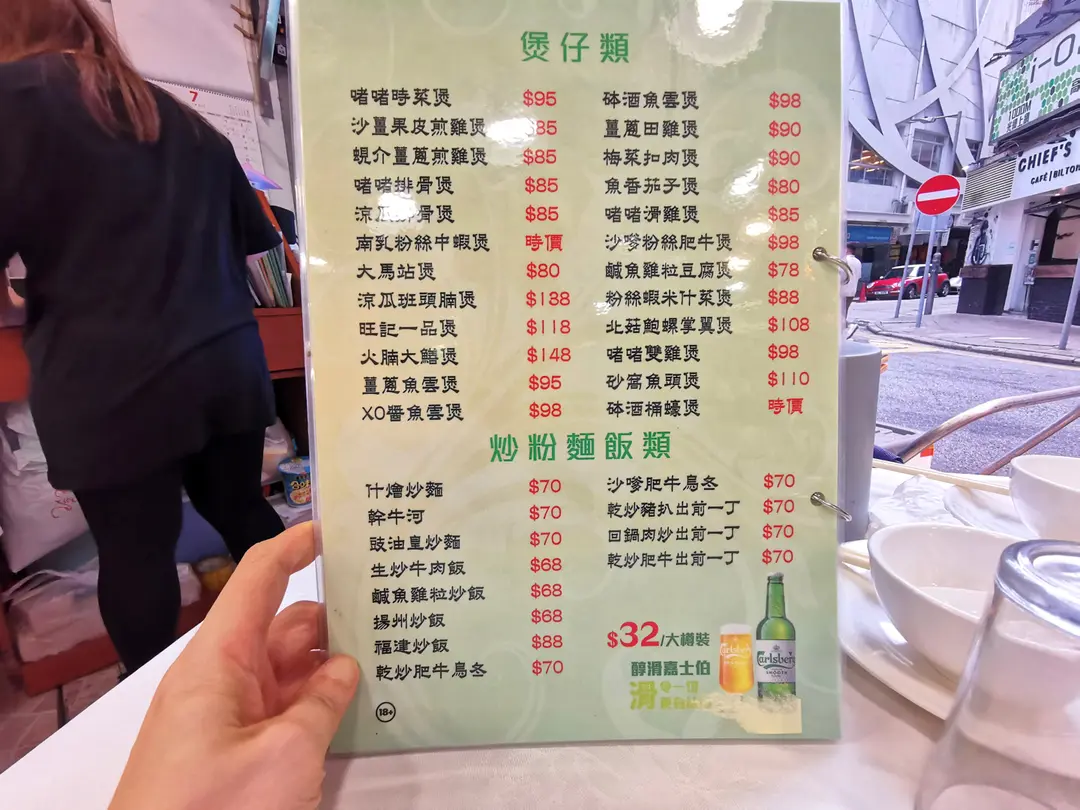 煲仔類
啫啫時菜煲 $95
沙薑果皮煎雞煲 $85
蜆介薑蔥煎雞煲 $85
啫啫排骨煲 $85
涼瓜排骨煲 $85
南乳粉絲中蝦煲 時價
大馬站煲 $80
涼瓜班頭腩煲 $138
旺記一品煲 $118
火腩大鱔煲 $148
薑蔥魚雲煲 $95
XO醬魚雲煲 $98
砵酒魚雲煲 $98
薑蔥田雞煲 $90
梅菜扣肉煲 $90
魚香茄子煲 $80
啫啫滑雞煲 $85
沙嗲粉絲肥牛煲 $98
鹹魚雞粒豆腐煲 $78
粉絲蝦米什菜煲 $88
北菇鮑螺掌翼煲 $108
啫啫雙雞煲 $98
砂窩魚頭煲 $110
砵酒桶蠔煲 時價
炒粉麵飯類
什燴炒麵 $70
幹牛河 $70
豉油皇炒麵 $70
生炒牛肉飯 $68
鹹魚雞粒炒飯 $68
揚州炒飯 $68
福建炒飯 $88
乾炒肥牛烏冬 $70
沙嗲肥牛烏冬 $70
乾炒豬扒出前一丁 $70
回鍋肉炒出前一丁 $70
乾炒肥牛出前一丁 $70
$32/大樽裝
醇滑嘉士伯
滑
Carlsberg
Carlsberg
SMOOTH
18+
7
i-O
1000M
CHIEF'S
CAFÉ | BILTO